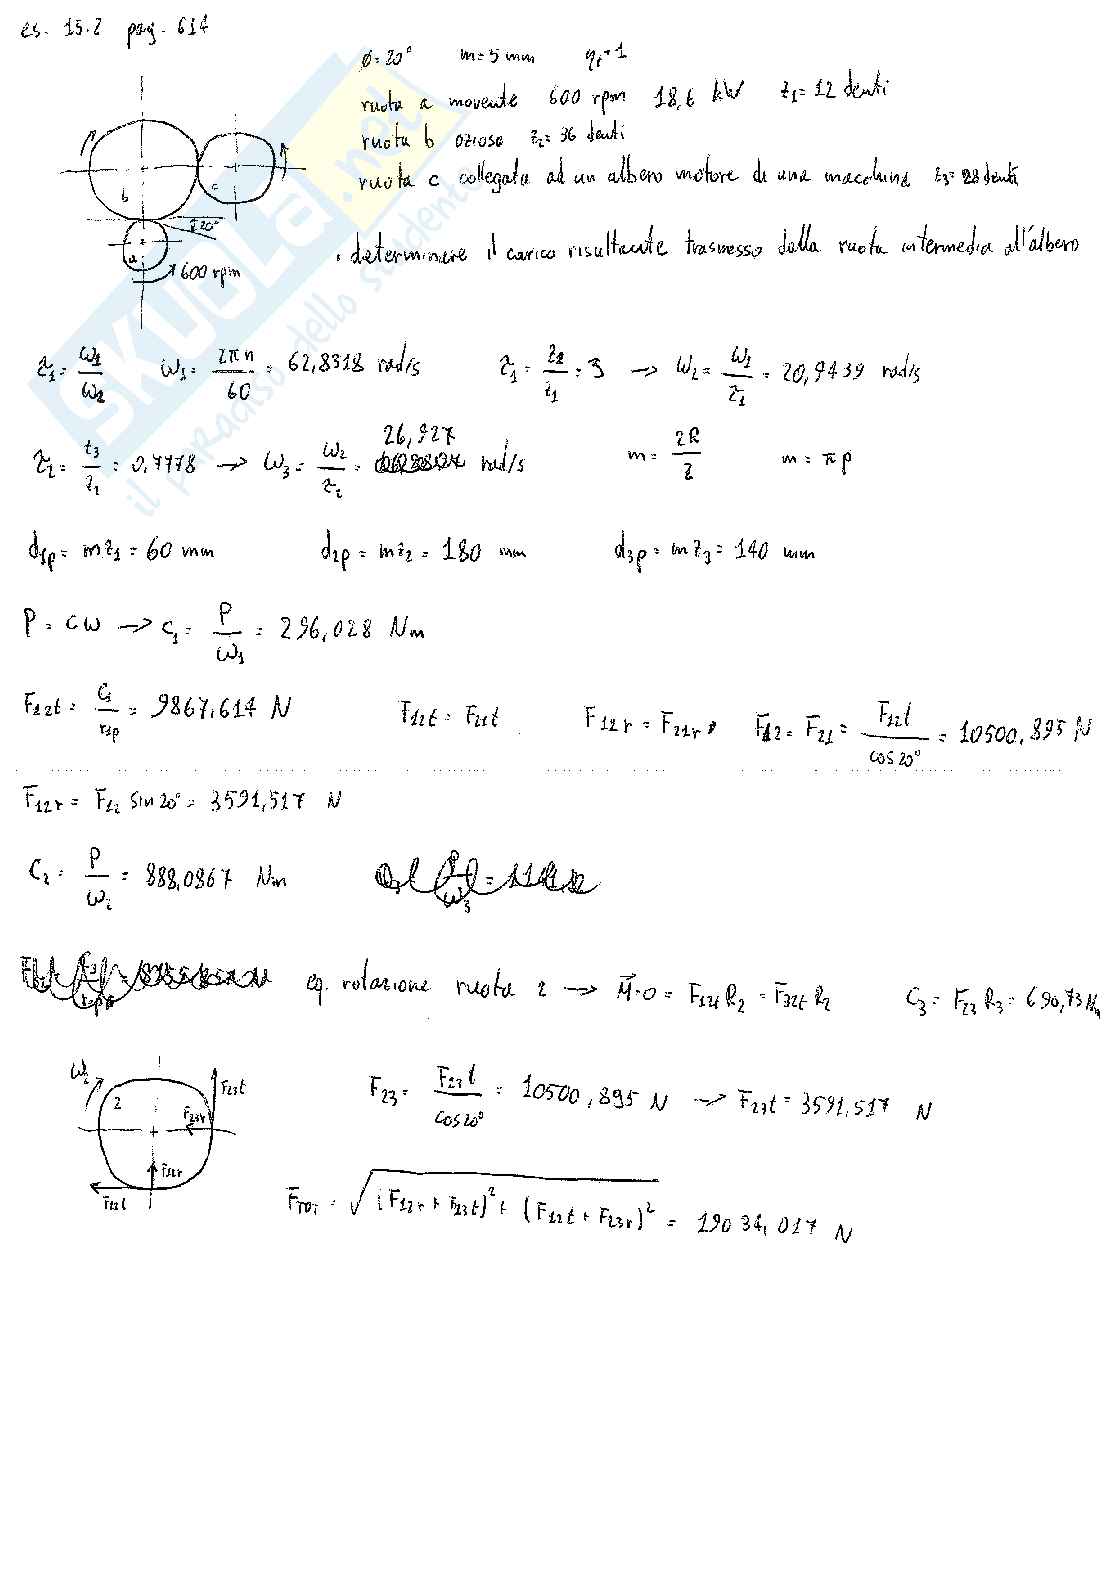 es. 15.2 pag. 614
φ = 20° m = 5 mm ηt = 1
ruota a movente 600 rpm 18,6 kW z1 = 12 denti
ruota b oziosa z2 = 36 denti
ruota c collegata ad un albero motore di una macchina z3 = 28 denti
b
c
20°
a
600 rpm
• determinere il carico risultante trasmesso dalla ruota intermedia all'albero
τ1 = ω1/ω2 ω1 = 2πn/60 = 62,8318 rad/s τ1 = z2/z1 = 3 → ω2 = ω1/τ1 = 20,9439 rad/s
τ2 = z3/z2 = 0,7778 → ω3 = ω2/τ2 = 26,927 rad/s m = 2R/z m = πp
d1p = mz1 = 60 mm d2p = mz2 = 180 mm d3p = mz3 = 140 mm
P = Cω → C1 = P/ω1 = 296,028 Nm
F12t = C1/r1p = 9867,614 N F12t = F21t F12r = F21r F12 = F21 = F12t/cos20° = 10500,895 N
F12r = F12 sin20° = 3591,517 N
C2 = P/ω2 = 888,0867 Nm
eq. rotazione ruota 2 → M·O = F12t R2 = F32t R2 C3 = F23 R3 = 690,73 Nm
ω2
2
F23t
F23r
F12r
F12t
F23 = F23t/cos20° = 10500,895 N → F23t = 3591,517 N
FTOT = √((F12r + F23t)² + (F12t + F23r)²) = 19034,017 N
SKUOLA.net
il paradiso dello studente